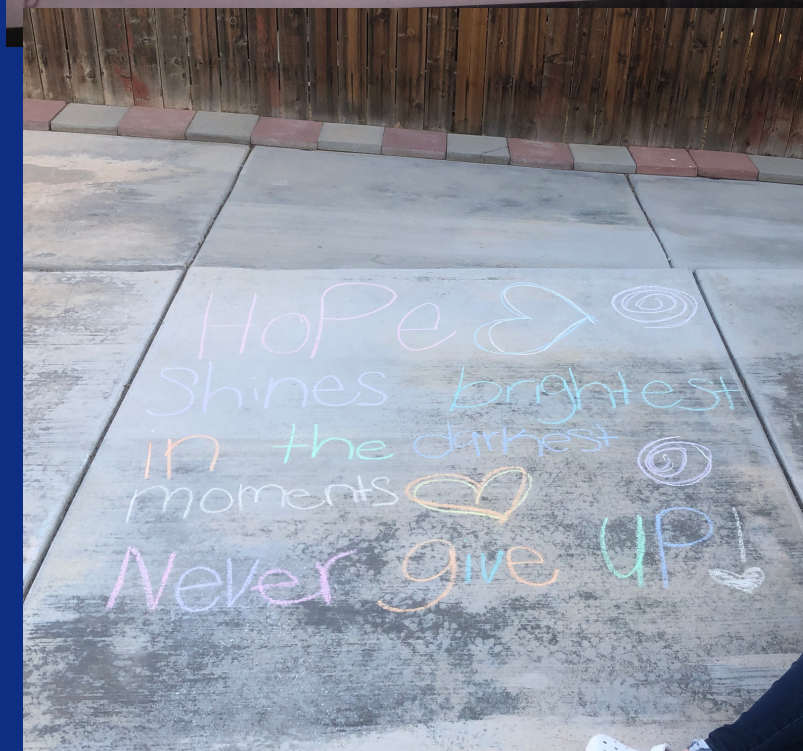 HoPe
Shines brightest
in the darkest
moments
Never give UP!